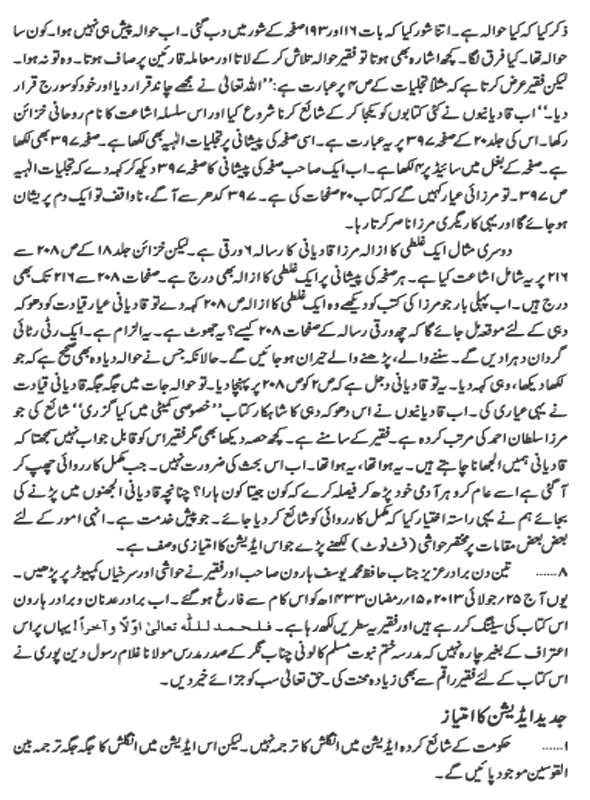 ذکر کیا کہ کیا حوالہ ہے۔ اتنا شور کیا کہ بات ۱۶ اور ۱۹۳ صفحہ کے شور میں دب گئی۔ اب حوالہ پیش ہی نہیں ہوا۔ کون سا
حوالہ تھا۔ کیا فرق لگا۔ کچھ اشارہ بھی ہوتا تو فقیر حوالہ تلاش کر کے لاتا اور معاملہ قارئین پر صاف ہوتا۔ وہ تو نہ ہوا۔
لیکن فقیر عرض کرتا ہے کہ مثلاً تجلیات کے ص۴ پر عبارت ہے: ’’اللہ تعالیٰ نے مجھے چاند قرار دیا اور خود کو سورج قرار
دیا۔‘‘ اب قادیانیوں نے کئی کتابوں کو یکجا کر کے شائع کرنا شروع کیا اور اس سلسلہ اشاعت کا نام روحانی خزائن
رکھا۔ اس کی جلد ۲۰ کے صفحہ ۳۹۷ پر یہ عبارت ہے۔ اسی صفحہ کی پیشانی پر تجلیات الٰہیہ بھی لکھا ہے۔ صفحہ ۳۹۷ بھی لکھا
ہے۔ صفحہ کے بغل میں سائیڈ پر ۴ لکھا ہے۔ اب ایک صاحب صفحہ کی پیشانی کا صفحہ ۳۹۷ دیکھ کر کہہ دے کہ تجلیات الٰہیہ
ص ۳۹۷۔ تو مرزائی عیار کہیں گے کہ کتاب ۲۰ صفحات کی ہے۔ ۳۹۷ کدھر سے آ گے، ناواقف تو ایک دم پریشان
ہو جائے گا اور یہی کاریگری مرزا ناصر کرتا رہا۔
دوسری مثال ایک غلطی کا ازالہ مرزا قادیانی کا رسالہ ۶ ورقی ہے۔ لیکن خزائن جلد ۱۸ کے ص ۲۰۸ سے
۲۱۶ پر یہ شامل اشاعت کیا ہے۔ ہر صفحہ کی پیشانی پر ایک غلطی کا ازالہ بھی درج ہے۔ صفحات ۲۰۸ سے ۲۱۶ تک بھی
درج ہیں۔ اب پہلی بار جو مرزا کی کتب کو دیکھے وہ ایک غلطی کا ازالہ ص ۲۰۸ کہہ دے تو قادیانی عیار قیادت کو دھوکہ
دہی کے لئے موقعہ مل جائے گا کہ چھ ورقی رسالہ کے صفحات ۲۰۸ کیسے؟ یہ جھوٹ ہے۔ یہ الزام ہے۔ ایک رٹی رٹائی
گردان دہرا دیں گے۔ سننے والے، پڑھنے والے حیران ہو جائیں گے۔ حالانکہ جس نے حوالہ دیا وہ بھی صحیح ہے کہ جو
لکھا دیکھا، وہی کہہ دیا۔ یہ تو قادیانی دجل ہے کہ ص ۲ کو ص ۲۰۸ پر پہنچا دیا۔ تو حوالہ جات میں جگہ جگہ قادیانی قیادت
نے یہی عیاری کی۔ اب قادیانیوں نے اس دھوکہ دہی کا شاہکار کتاب ’’خصوصی کمیٹی میں کیا گزری‘‘ شائع کی جو
مرزا سلطان احمد کی مرتب کردہ ہے۔ فقیر کے سامنے ہے۔ کچھ حصہ دیکھا بھی مگر فقیر اس کو قابل جواب نہیں سمجھتا کہ
قادیانی ہمیں الجھانا چاہتے ہیں۔ یہ ہوا تھا، یہ ہوا تھا۔ اب اس بحث کی ضرورت نہیں۔ جب مکمل کارروائی چھپ کر
آ گئی ہے اسے عام کرو ہر آدمی خود پڑھ کر فیصلہ کرے کہ کون جیتا کون ہارا؟ چنانچہ قادیانی الجھنوں میں پڑنے کی
بجائے ہم نے یہی راستہ اختیار کیا کہ مکمل کارروائی کو شائع کر دیا جائے۔ جو پیش خدمت ہے۔ انہی امور کے لئے
بعض بعض مقامات پر مختصر حواشی (فٹ نوٹ) لکھنے پڑے جو اس ایڈیشن کا امتیازی وصف ہے۔
۸...... تین دن برادر عزیز جناب حافظ محمد یوسف ہارون صاحب اور فقیر نے حواشی اور سرخیاں کمپیوٹر پر پڑھیں۔
یوں آج ۲۵؍جولائی ۲۰۱۳ء، ۱۵؍رمضان ۱۴۳۳ھ کو اس کام سے فارغ ہو گئے۔ اب برادر عدنان و برادر ہارون
اس کتاب کی سیٹنگ کر رہے ہیں اور فقیر یہ سطریں لکھ رہا ہے۔ فلحمد للہ تعالیٰ اوّلا و آخراً! یہاں پر اس
اعتراف کے بغیر چارہ نہیں کہ مدرسہ ختم نبوت مسلم کالونی چناب نگر کے صدر مدرس مولانا غلام رسول دین پوری نے
اس کتاب کے لئے فقیر راقم سے بھی زیادہ محنت کی۔ حق تعالیٰ سب کو جزائے خیر دیں۔
جدید ایڈیشن کا امتیاز
۱...... حکومت کے شائع کردہ ایڈیشن میں انگلش کا ترجمہ نہیں۔ لیکن اس ایڈیشن میں انگلش کا جگہ جگہ ترجمہ بین
القوسین موجود پائیں گے۔